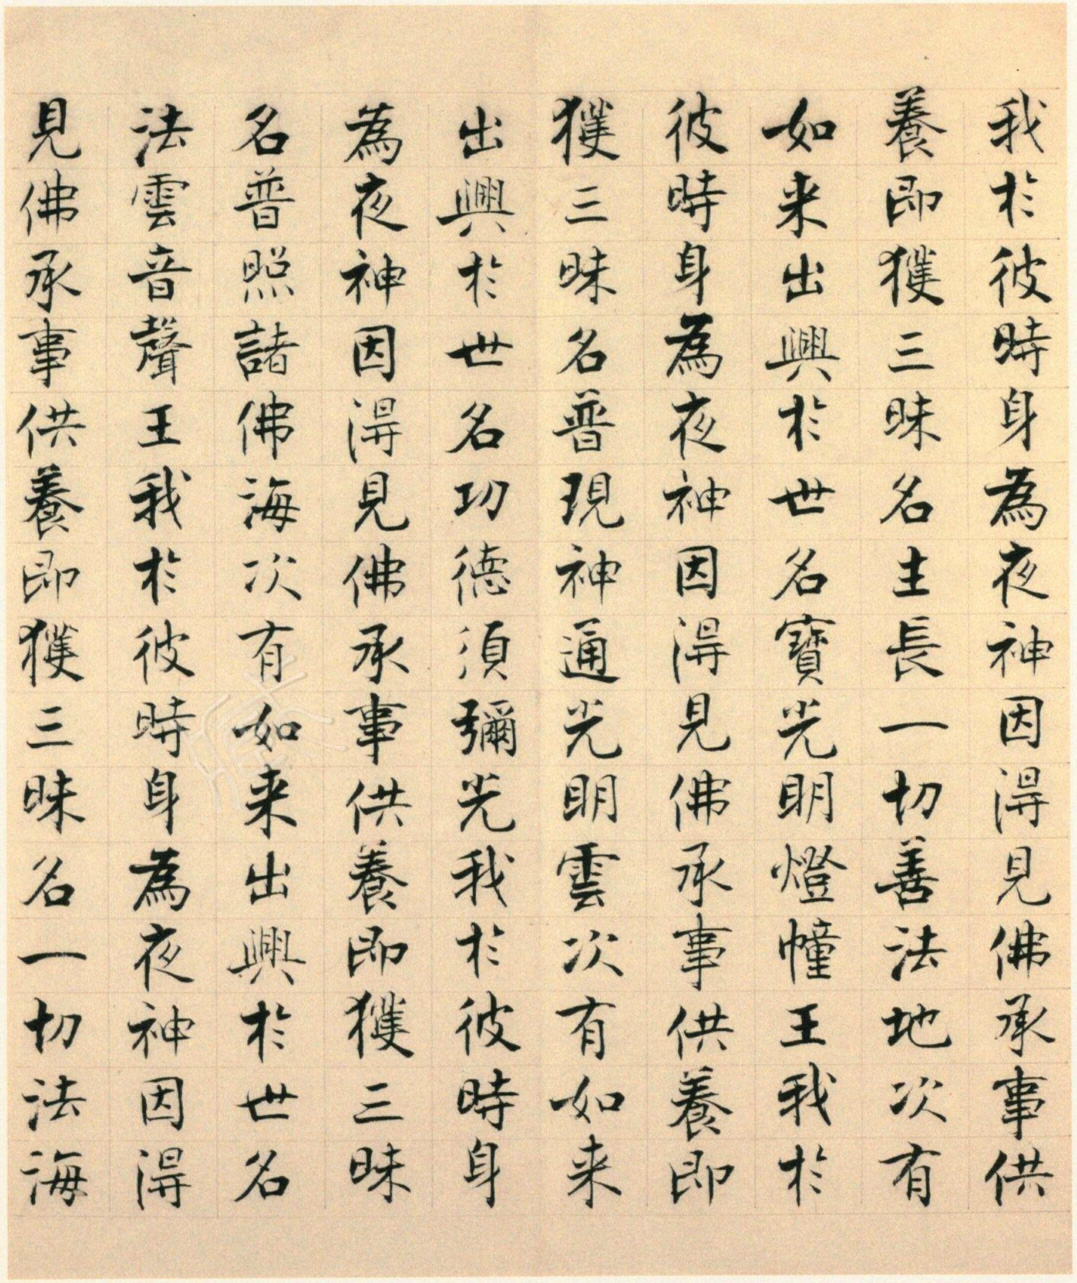 我於彼時身為夜神因得見佛承事供
養即獲三昧名主長一切善法地次有
如来出興於世名寶光明燈幢王我於
彼時身為夜神因得見佛承事供養即
獲三昧名普現神通光明雲次有如来
出興於世名功德須彌光我於彼時身
為夜神因得見佛承事供養即獲三昧
名普照諸佛海次有如来出興於世名
法雲音聲王我於彼時身為夜神因得
見佛承事供養即獲三昧名一切法海